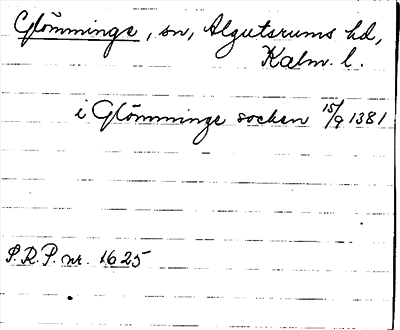 Glömminge, sn, Algutsrums hd,
Kalm. l.
i Glömminge socken 15/9 1381
S.R.P. nr. 1625